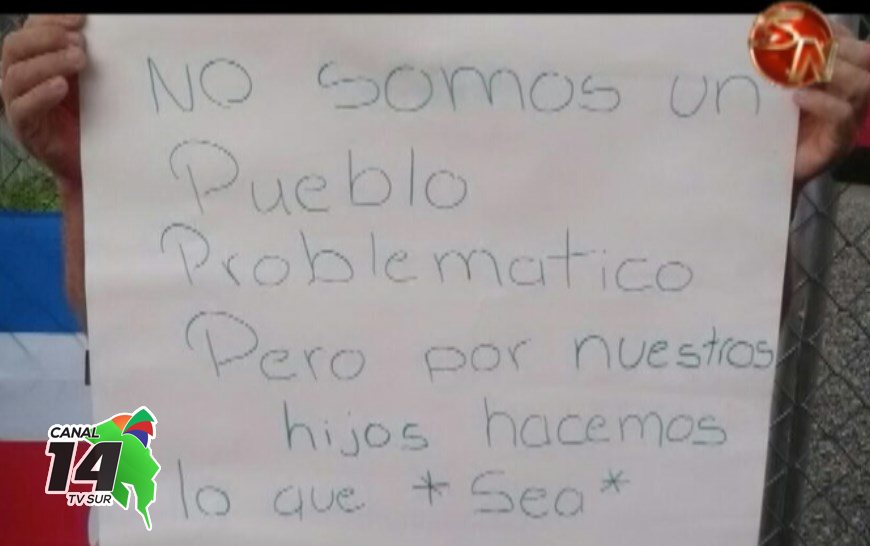 NO somos un
Pueblo
Problematico
Pero por nuestros
hijos hacemos
lo que *Sea*
CANAL
14
TV SUR